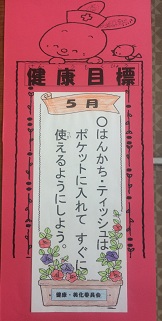 健康目標
5月
○はんかち・ティッシュは、
ポケットに入れて すぐに
使えるようにしよう。
健康・美化委員会